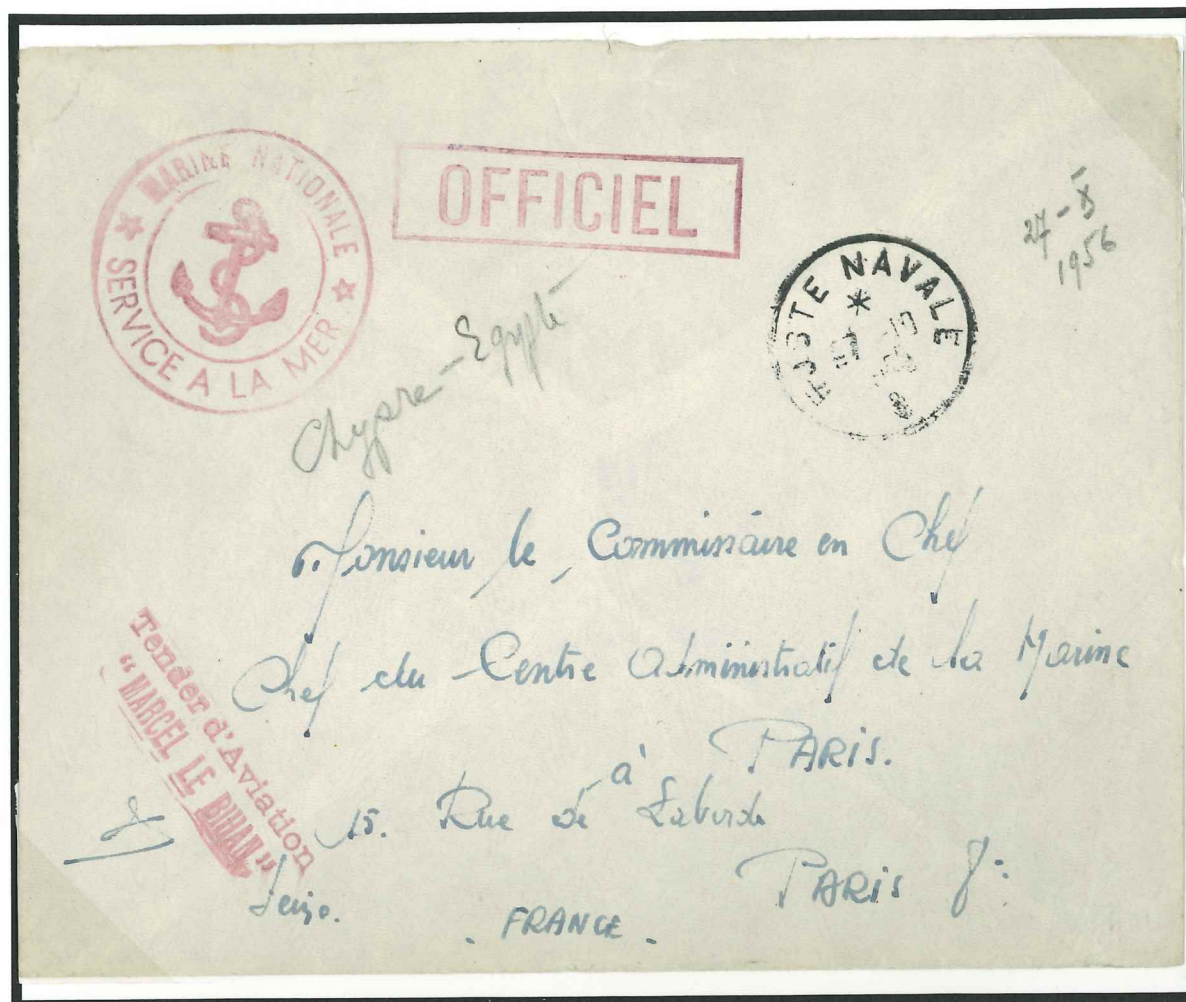 MARINE NATIONALE
SERVICE A LA MER
OFFICIEL
27-X
1956
POSTE NAVALE
Chypre-Egypte
Monsieur le Commissaire en Chef
Chef du Centre Administratif de la Marine
à PARIS.
15. Rue de Laborde
PARIS 8e
Seine.
FRANCE.
Tender d'Aviation
"MARCEL LE BIHAN"